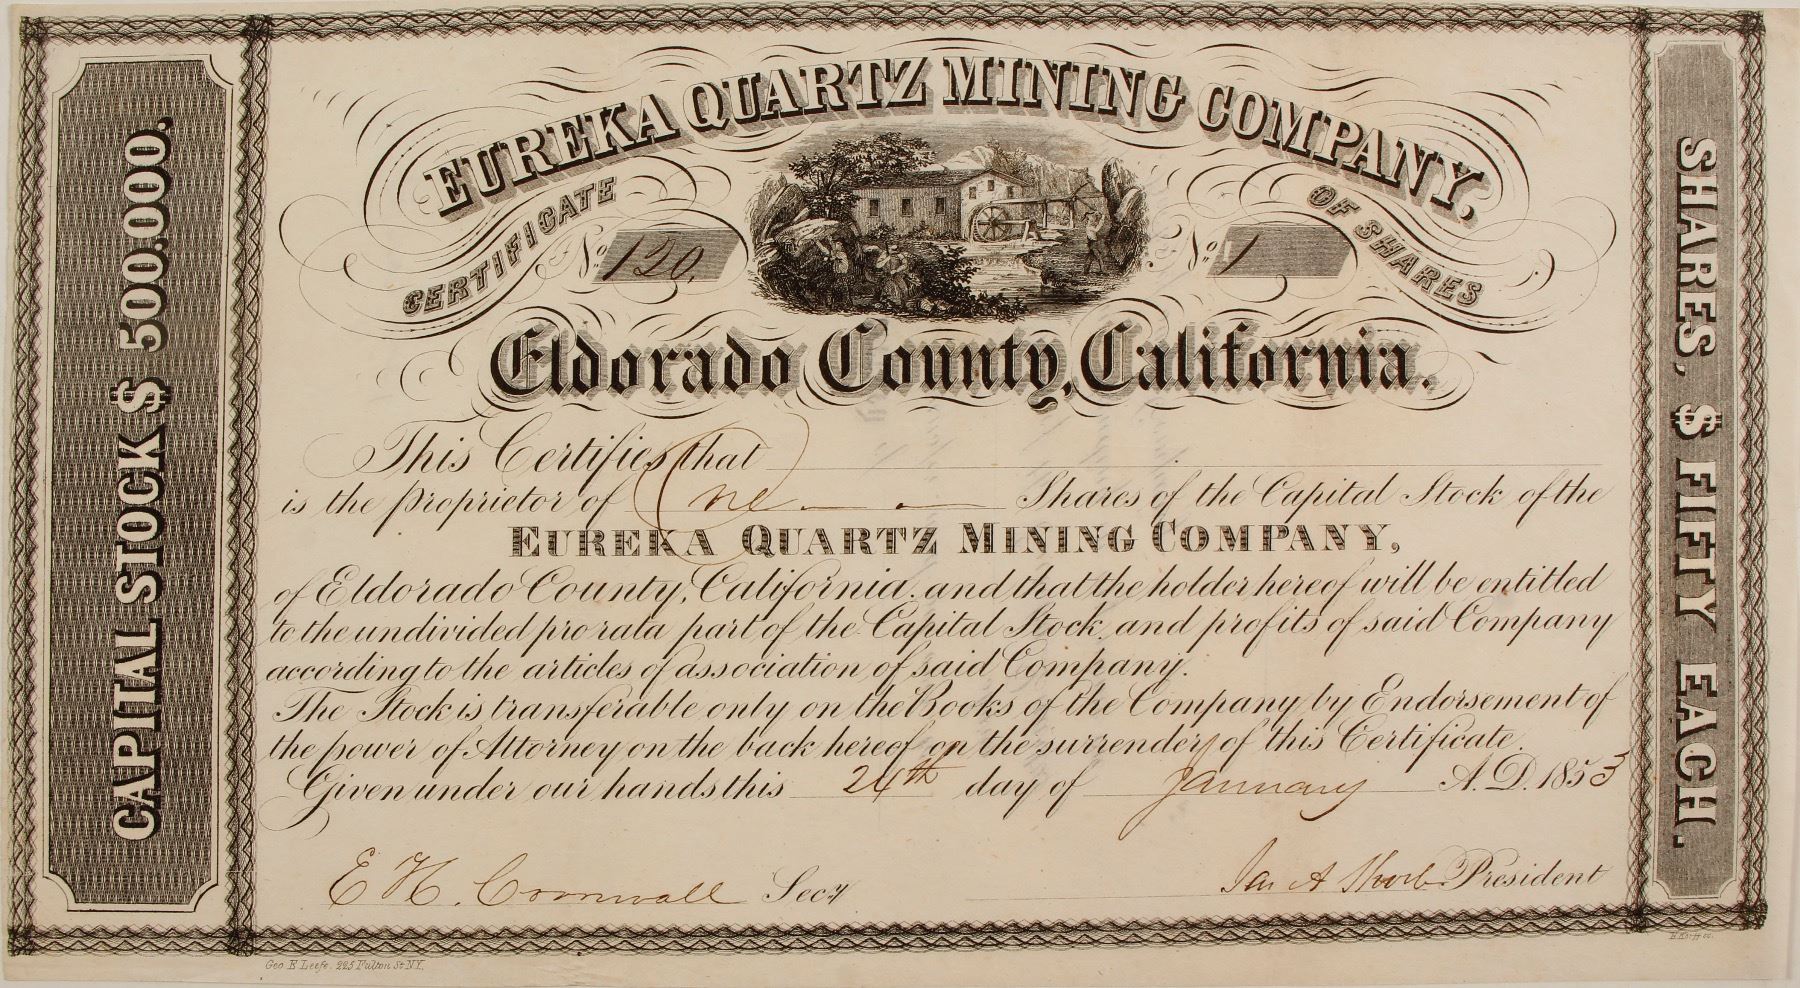 CAPITAL STOCK $ 500.000.
EUREKA QUARTZ MINING COMPANY.
CERTIFICATE OF SHARES
No. 120. No. 1
Eldorado County, California.
This Certifies that
is the proprietor of One Shares of the Capital Stock of the
EUREKA QUARTZ MINING COMPANY,
of Eldorado County, California. and that the holder hereof will be entitled
to the undivided pro rata part of the Capital Stock, and profits of said Company
according to the articles of association of said Company.
The Stock is transferable only on the Books of the Company by Endorsement of
the power of Attorney on the back hereof on the surrender of this Certificate.
Given under our hands this 24th day of January A.D. 1853
E H. Cornwall Secy
Jas A President
SHARES, $ FIFTY EACH.
Geo E Leefe. 225 Fulton St N.Y.